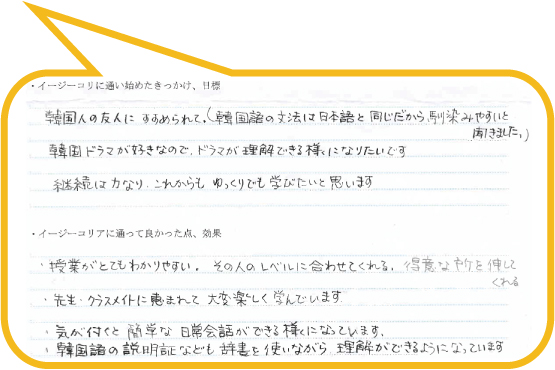 ・イージーコリに通い始めたきっかけ、目標
韓国人の友人に すすめられて、(韓国語の文法は日本語と同じだから馴染みやすいと
聞きました。)
韓国ドラマが好きなので、ドラマが理解できる様になりたいです
継続は力なり、これからも ゆっくりでも学びたいと思います
・イージーコリアに通って良かった点、効果
・授業がとてもわかりやすい。その人のレベルに合わせてくれる。得意な所を伸して
くれる
・先生・クラスメイトに恵まれて 大変楽しく学んでいます
・気が付くと 簡単な日常会話ができる様になっています。
・韓国語の説明証なども辞書を使いながら 理解ができるようになっています